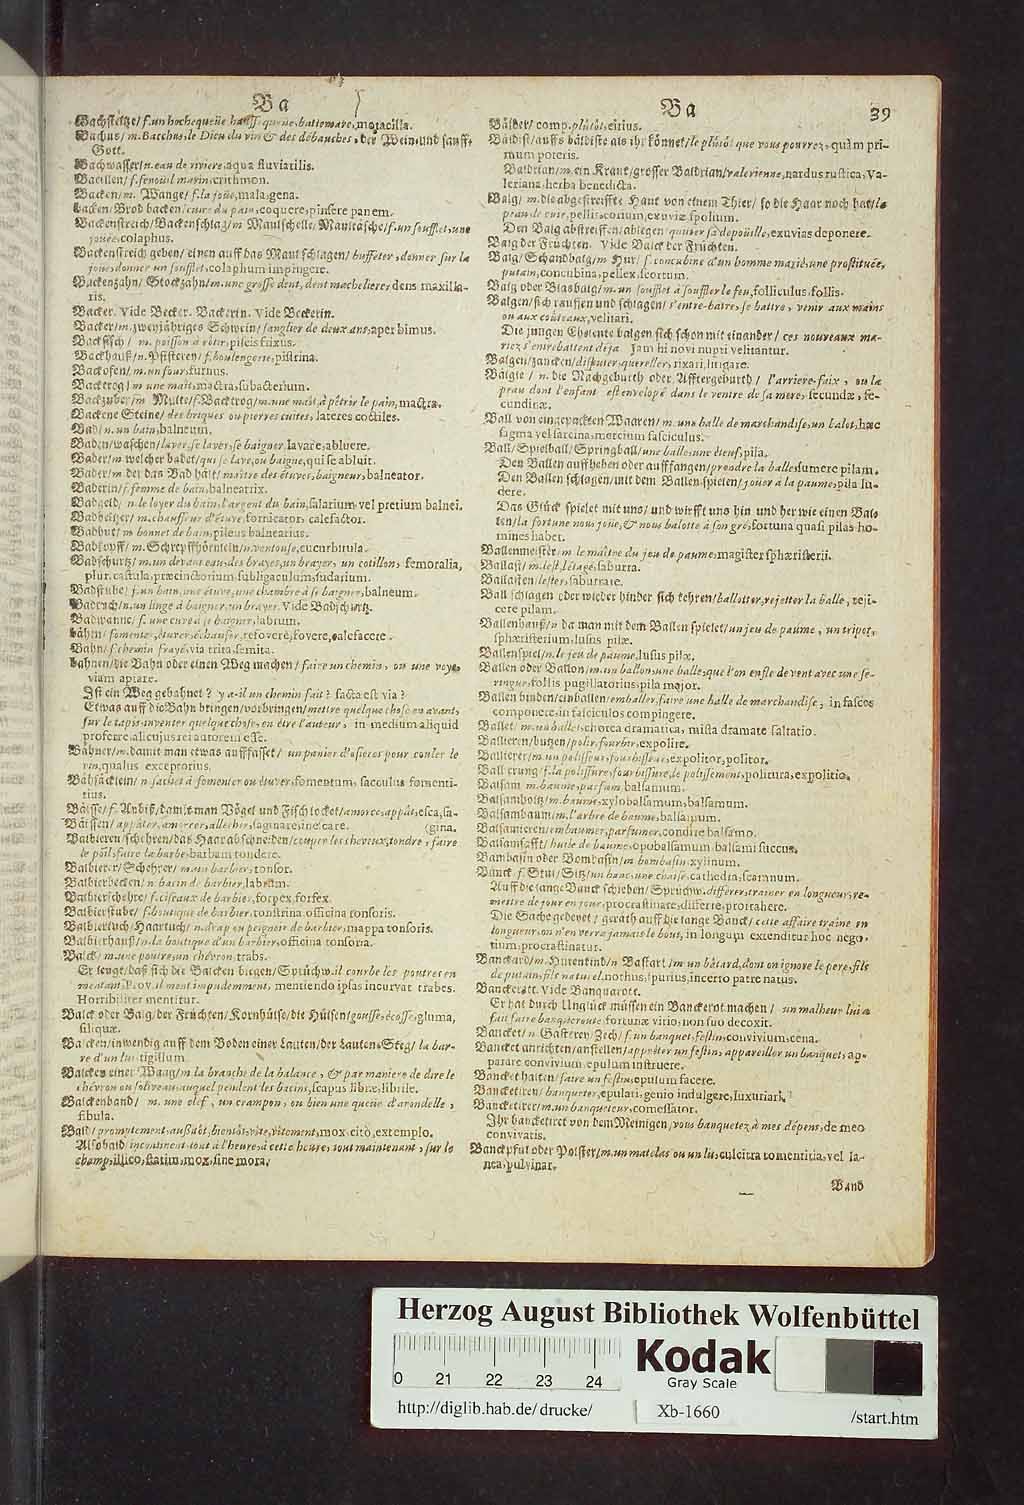 Ba
Bachsteltze/ f. un hochequeüe hausse queüe, battemare, motacilla.
Bachus/ m. Bacchus, le Dieu du vin & des débauches, der Wein und sauff-
Gott.
Bachwasser/ n. eau de riviere, aqua fluviatilis.
Bacillen/ f. fenoüil marin, crithmon.
Backen/ m. Wange/ f. la joüe, mala, gena.
backen/ Brod backen/ cuire du pain, coquere, pinsere panem.
Backenstreich/ Backenschlag/ m Maulschelle/ Maultäsche/ f. un soufflet, une
jouée, colaphus.
Backenstreich geben/ einen auff das Maul schlagen/ buffeter, donner sur la
joue, donner un soufflet, colaphum impingere.
Backenzahn/ Stockzahn/ m. une grosse dent, dent macheliere, dens maxilla-
ris.
Backer. Vide Becker. Backerin. Vide Beckerin.
Backer/ m. zweyjähriges Schwein/ sanglier de deux ans, aper bimus.
Backfisch/ m. poisson à rôtir, piscis frixus.
Backhauß/ n. Pfisterey/ f. boulengerie, pistrina.
Backofen/ m. un four, furnus.
Backtrog/ m une mait, mactra, subacterium.
Backzuber/ m Multe/ f. Backtrog/ m. une mait, à pétrir le pain, mactra.
Backene Steine/ des briques ou pierres cuites, lateres coctiles.
Bad/ n. un bain, balneum.
Baden/ waschen/ laver, se laver, se baigner, lavare, abluere.
Bader/ m welcher badet/ qui se lave, ou baigne, qui se abluit.
Bader/ m der das Bad hält/ maître des étuves, baigneur, balneator.
Baderin/ f. femme de bain, balneatrix.
Badgeld/ n. le loyer du bain, l'argent du bain, salarium vel pretium balnei.
Badheitzer/ m. chauffeur d'étuve, fornicator, calefactor.
Badhut/ m bonnet de bain, pileus balnearius.
Badkopff/ m. Schrepffhörnlein/ n. ventouse, cucurbitula.
Badschurtz/ m. un devant eau, des brayes, un brayer, un cotillon, femoralia,
plur. castula, præcinctorium, subligaculum, sudarium.
Badstube/ f. un bain, une étuve, une chambre à se baigner, balneum.
Badtuch/ n. un linge à baigner, un brayer. Vide Badschurtz.
Badwanne/ f. une cuve à se baigner, labrum.
bähen/ fomenter, étuver, échaufer, refovere, fovere, calefacere.
Bahn/ f. chemin frayé, via trita, semita.
bahnen/ die Bahn oder einen Weg machen/ faire un chemin, ou une voye,
viam apiare.
Ist ein Weg gebahnet? y a-il un chemin fait? facta est via?
Etwas auff die Bahn bringen/ vorbringen/ mettre quelque chose en avant,
sur le tapis, inventer quelque chose, en être l'auteur, in medium aliquid
proferre, alicujus rei autorem esse.
Bähner/ m. damit man etwas auffasset/ un panier d'osieres pour couler le
vin, qualus exceptorius.
Bähsäcklein/ n. sachet à fomenter ou étuver, fomentum, sacculus fomenti-
tius.
Bäisse/ f. Anbiß/ damit man Vögel und Fisch locket/ amorce, appât, esca, sa-
Bäissen/ appâter, amorcer, allecher, saginare, inescare. (gina.
Balbieren/ schehren/ das Haar abschneiden/ couper les cheveux, tondre, faire
le poil, faire la barbe, barbam tondere.
Balbierer/ Schehrer/ m un barbier, tonsor.
Balbierbecken/ n. bassin de barbier, labrum.
Balbierschehre/ f. ciseaux de barbier, forpex, forfex.
Balbierstube/ f. boutique de barbier, tonstrina, officina tonsoris.
Balbiertuch/ Haartuch/ n. drap ou peignoir de barbier, mappa tonsoris.
Balbierhauß/ n. la boutique d'un barbier, officina tonsoria.
Balck/ m. une poutre, un chévron, trabs.
Er leugt/ daß sich die Balcken biegen/ Sprüchw. il courbe les poutres en
mentant, Prov. il ment impudemment, mentiendo ipsas incurvat trabes.
Horribiliter mentitur.
Balck oder Balg/ der Früchten/ Kornhülse/ die Hülsen/ gousse, écosse, gluma,
siliquæ.
Balcken/ inwendig auff dem Boden einer Lauten/ der Lauten-Steg/ la bar-
re d'un lut, tigillum.
Balcken einer Waag/ m. la branche de la balance, & par maniere de dire le
chévron ou soliveau, auquel pendent les bacins, scapus libræ, librile.
Balckenband/ m. une clef, un crampon, ou bien une queüe d'arondelle,
fibula.
Bald/ promptement, aussitôt, bientôt, vite, vitement, mox, citò, extemplo.
Alsobald/ incontinent, tout à l'heure, à cette heure, tout maintenant, sur le
champ, illico, statim, mox, sine mora.
Ba 39
Bälder/ comp. plûtôt, citius.
Bäldist/ auffs bäldiste als ihr könnet/ le plûtôt que vous pourrez, quàm pri-
mum poteris.
Baldrian/ m. ein Kraut/ grosser Baldrian/ valerienne, nardus rustica, Va-
leriana, herba benedicta.
Balg/ m. die abgestreiffte Haut von einem Thier/ so die Haar noch hat/ la
peau de cuir, pellis, corium, exuviæ spolium.
Den Balg abstreiffen/ ablegen quitter sa depoüille, exuvias deponere.
Balg der Früchten. Vide Balck der Früchten.
Balg/ Schandbalg/ m Hur/ f. concubine d'un homme marié, une prostituée,
putain, concubina, pellex, scortum.
Balg oder Blasbalg/ m. un soufflet à souffler le feu, folliculus, follis.
Balgen/ sich rauffen und schlagen/ s'entre-batre, se battre, venir aux mains
ou aux coûteaux, velitari.
Die jungen Eheleute balgen sich schon mit einander/ ces nouveaux ma-
riez s'entrebattent déja. Jam hi novi nupti velitantur.
Balgen/ zancken/ disputer, quereller, rixari, litigare.
Bälgle/ n. die Nachgeburth oder Afftergeburth/ l'arriere-faix, ou la
peau dont l'enfant est envelopé dans le ventre de sa mere, secundæ, se-
cundinæ.
Ball von eingepackten Waaren/ m. une balle de marchandise, un balot, hæc
sagma vel sarcina, mercium fasciculus.
Ball/ Spielball/ Springball/ une balle, une éteuf, pila.
Den Ballen auffheben oder aufffangen/ prendre la balle, sumere pilam.
Den Ballen schlagen/ mit dem Ballen spielen/ joüer à la paume, pila lu-
dere.
Das Glück spielet mit uns/ und wirfft uns hin und her wie einen Bal-
len/ la fortune nous joüe, & nous balotte à son gré, fortuna quasi pilas ho-
mines habet.
Ballenmeister/ m le maître du jeu de paume, magister sphæristerii.
Ballast/ m. lest, létage, saburra.
Ballasten/ lester, saburrare.
Ball schlagen oder wieder hinder sich kehren/ ballotter, rejetter la balle, reji-
cere pilam.
Ballenhauß/ n da man mit dem Ballen spielet/ un jeu de paume, un tripot,
sphæristerium, lusus pilæ.
Ballenspiel/ n. le jeu de paume, lusus pilæ.
Ballen oder Ballon/ m. un ballon, une balle, que l'on enfle de vent avec une se-
ringue, follis pugillatorius, pila major.
Ballen binden/ einballen/ emballer, faire une balle de marchandise, in fasces
componere, in fasciculos compingere.
Ballet/ m. un ballet, chorea dramatica, mista dramate saltatio.
Ballieren/ butzen/ polir, fourbir, expolire.
Ballierer/ m. un polisseur, fourbisseur, expolitor, politor.
Ballierung/ f. la polissure, fourbissure, de polissement, politura, expolitio.
Balsam/ m. baume, parfum, balsamum.
Balsamholtz/ m. baume, xylobalsamum, balsamum.
Balsambaum/ m. l'arbre de baume, balsamum.
Balsamieren/ embaumer, parfumer, condire balsamo.
Balsamsafft/ huile de baume, opobalsamum, balsami succus.
Bambasin oder Bombasin/ m bombasin, xylinum.
Banck, f. Stul/ Sitz/ un banc, une chaise, cathedra, scamnum.
Auff die lange Banck schieben/ Sprüchw. differer, trainer en longueur, re-
mettre de jour en jour, procrastinare, differre, protrahere.
Die Sache gedeyet/ geräth auff die lange Banck/ cette affaire traîne en
longueur, on n'en verra jamais le bout, in longum extenditur hoc nego-
tium, procrastinatur.
Banckard/ m. Hurenkind/ n Bastart/ m un bâtard, dont on ignore le pere, fils
de putain, fils naturel, nothus, spurius, incerto patre natus.
Banckerott. Vide Banquarott.
Er hat durch Unglück müssen ein Banckerot machen/ un malheur lui a
fait faire banqueroute, fortunæ vitio, non suo decoxit.
Bancket/ n. Gasterey, Zech/ f. un banquet, festin, convivium, cena.
Bancket anrichten/ anstellen/ appréter un festin, appareiller un banquet, ap-
parare convivium, epulum instruere.
Bancket halten/ faire un festin, epulum facere.
Bancketiren/ banqueter, epulari, genio indulgere, luxuriari.
Bancketirer/ m. un banqueteur, comessator.
Ihr bancketiret von dem Meinigen, vous banquetez à mes dépens, de meo
convivatis.
Banckpful oder Polster/ m. un matelas ou un lit, culcitra tomentitia, vel la-
nea, pulvinar.
Band
Herzog August Bibliothek Wolfenbüttel
0 21 22 23 24
Kodak
Gray Scale
http://diglib.hab.de/drucke/ Xb-1660 /start.htm